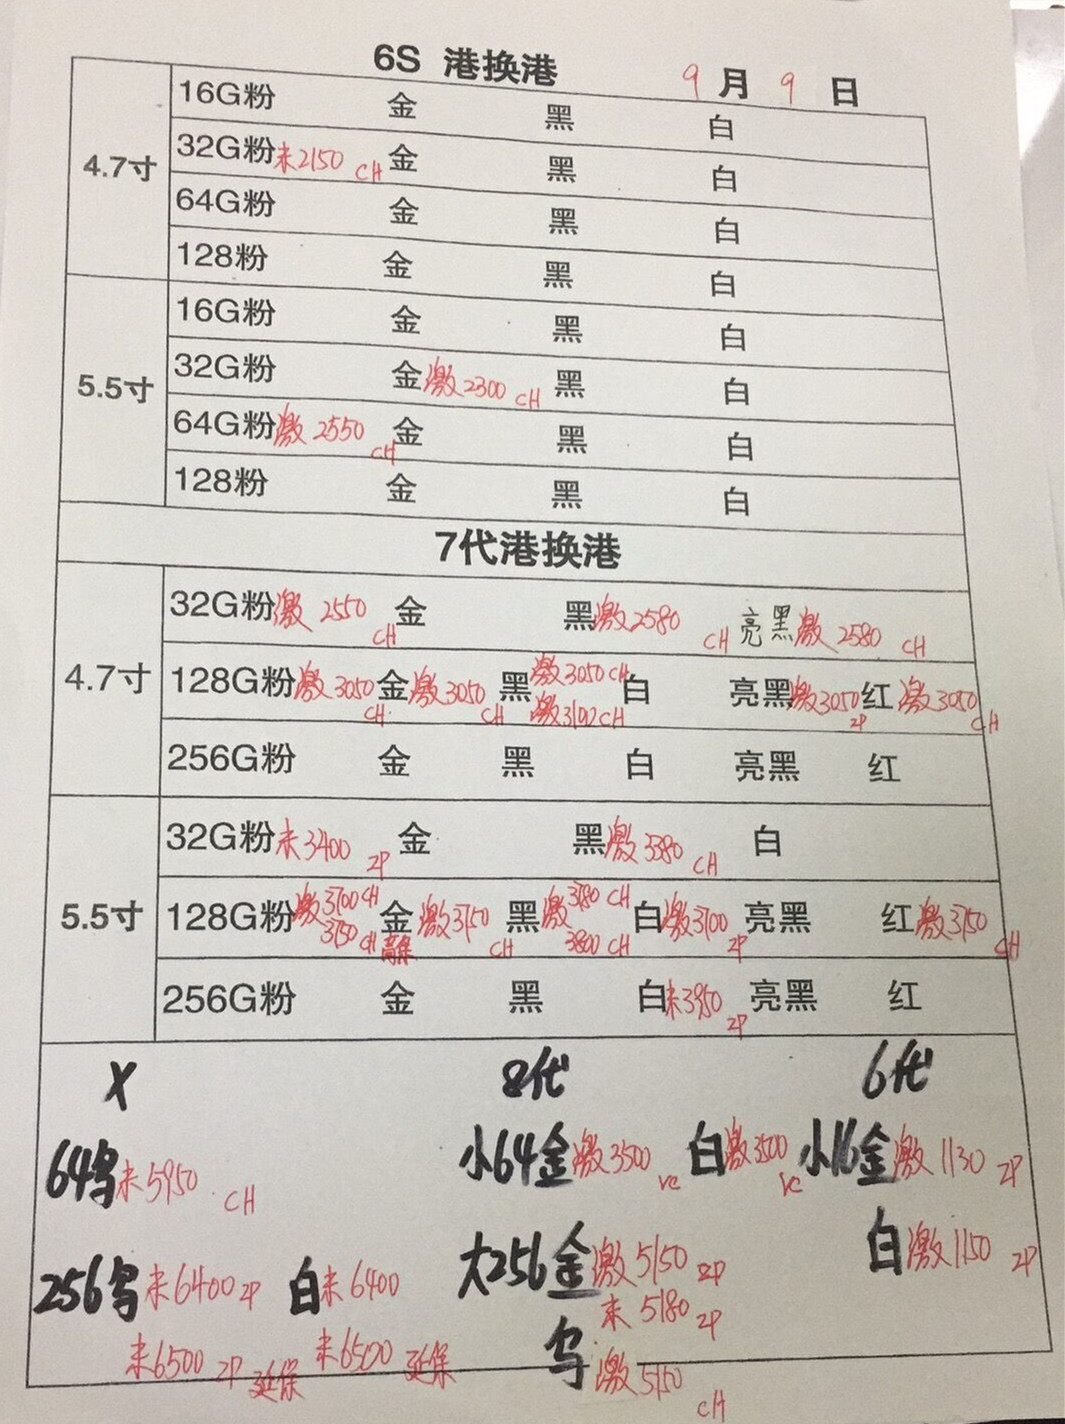 6S 港换港 9月9日
4.7寸
16G粉 金 黑 白
32G粉未2150 CH 金 黑 白
64G粉 金 黑 白
128粉 金 黑 白
5.5寸
16G粉 金 黑 白
32G粉 金激2300 CH 黑 白
64G粉激2550 CH 金 黑 白
128粉 金 黑 白
7代港换港
4.7寸
32G粉激2550 CH 金 黑激2580 CH 亮黑激2580 CH
128G粉激3050 CH 金激3050 CH 黑激3050 CH 激3100 CH 白 亮黑激3050 ZP 红激3080 CH
256G粉 金 黑 白 亮黑 红
5.5寸
32G粉未3400 ZP 金 黑激3380 CH 白
128G粉激3700 CH 3750 CH 金激3750 CH 黑激3780 CH 3800 CH 白激3700 ZP 亮黑 红激3750 CH
256G粉 金 黑 白未3950 ZP 亮黑 红
X 8代 6代
64乌未5950 CH 小64金激3500 VC 白激3500 VC 小16金激1130 ZP
白激1150 ZP
256乌未6400 ZP 白未6400 大256金激5150 ZP
未5180 ZP
未6500 ZP 延保 未6500 延保 乌激5150 CH